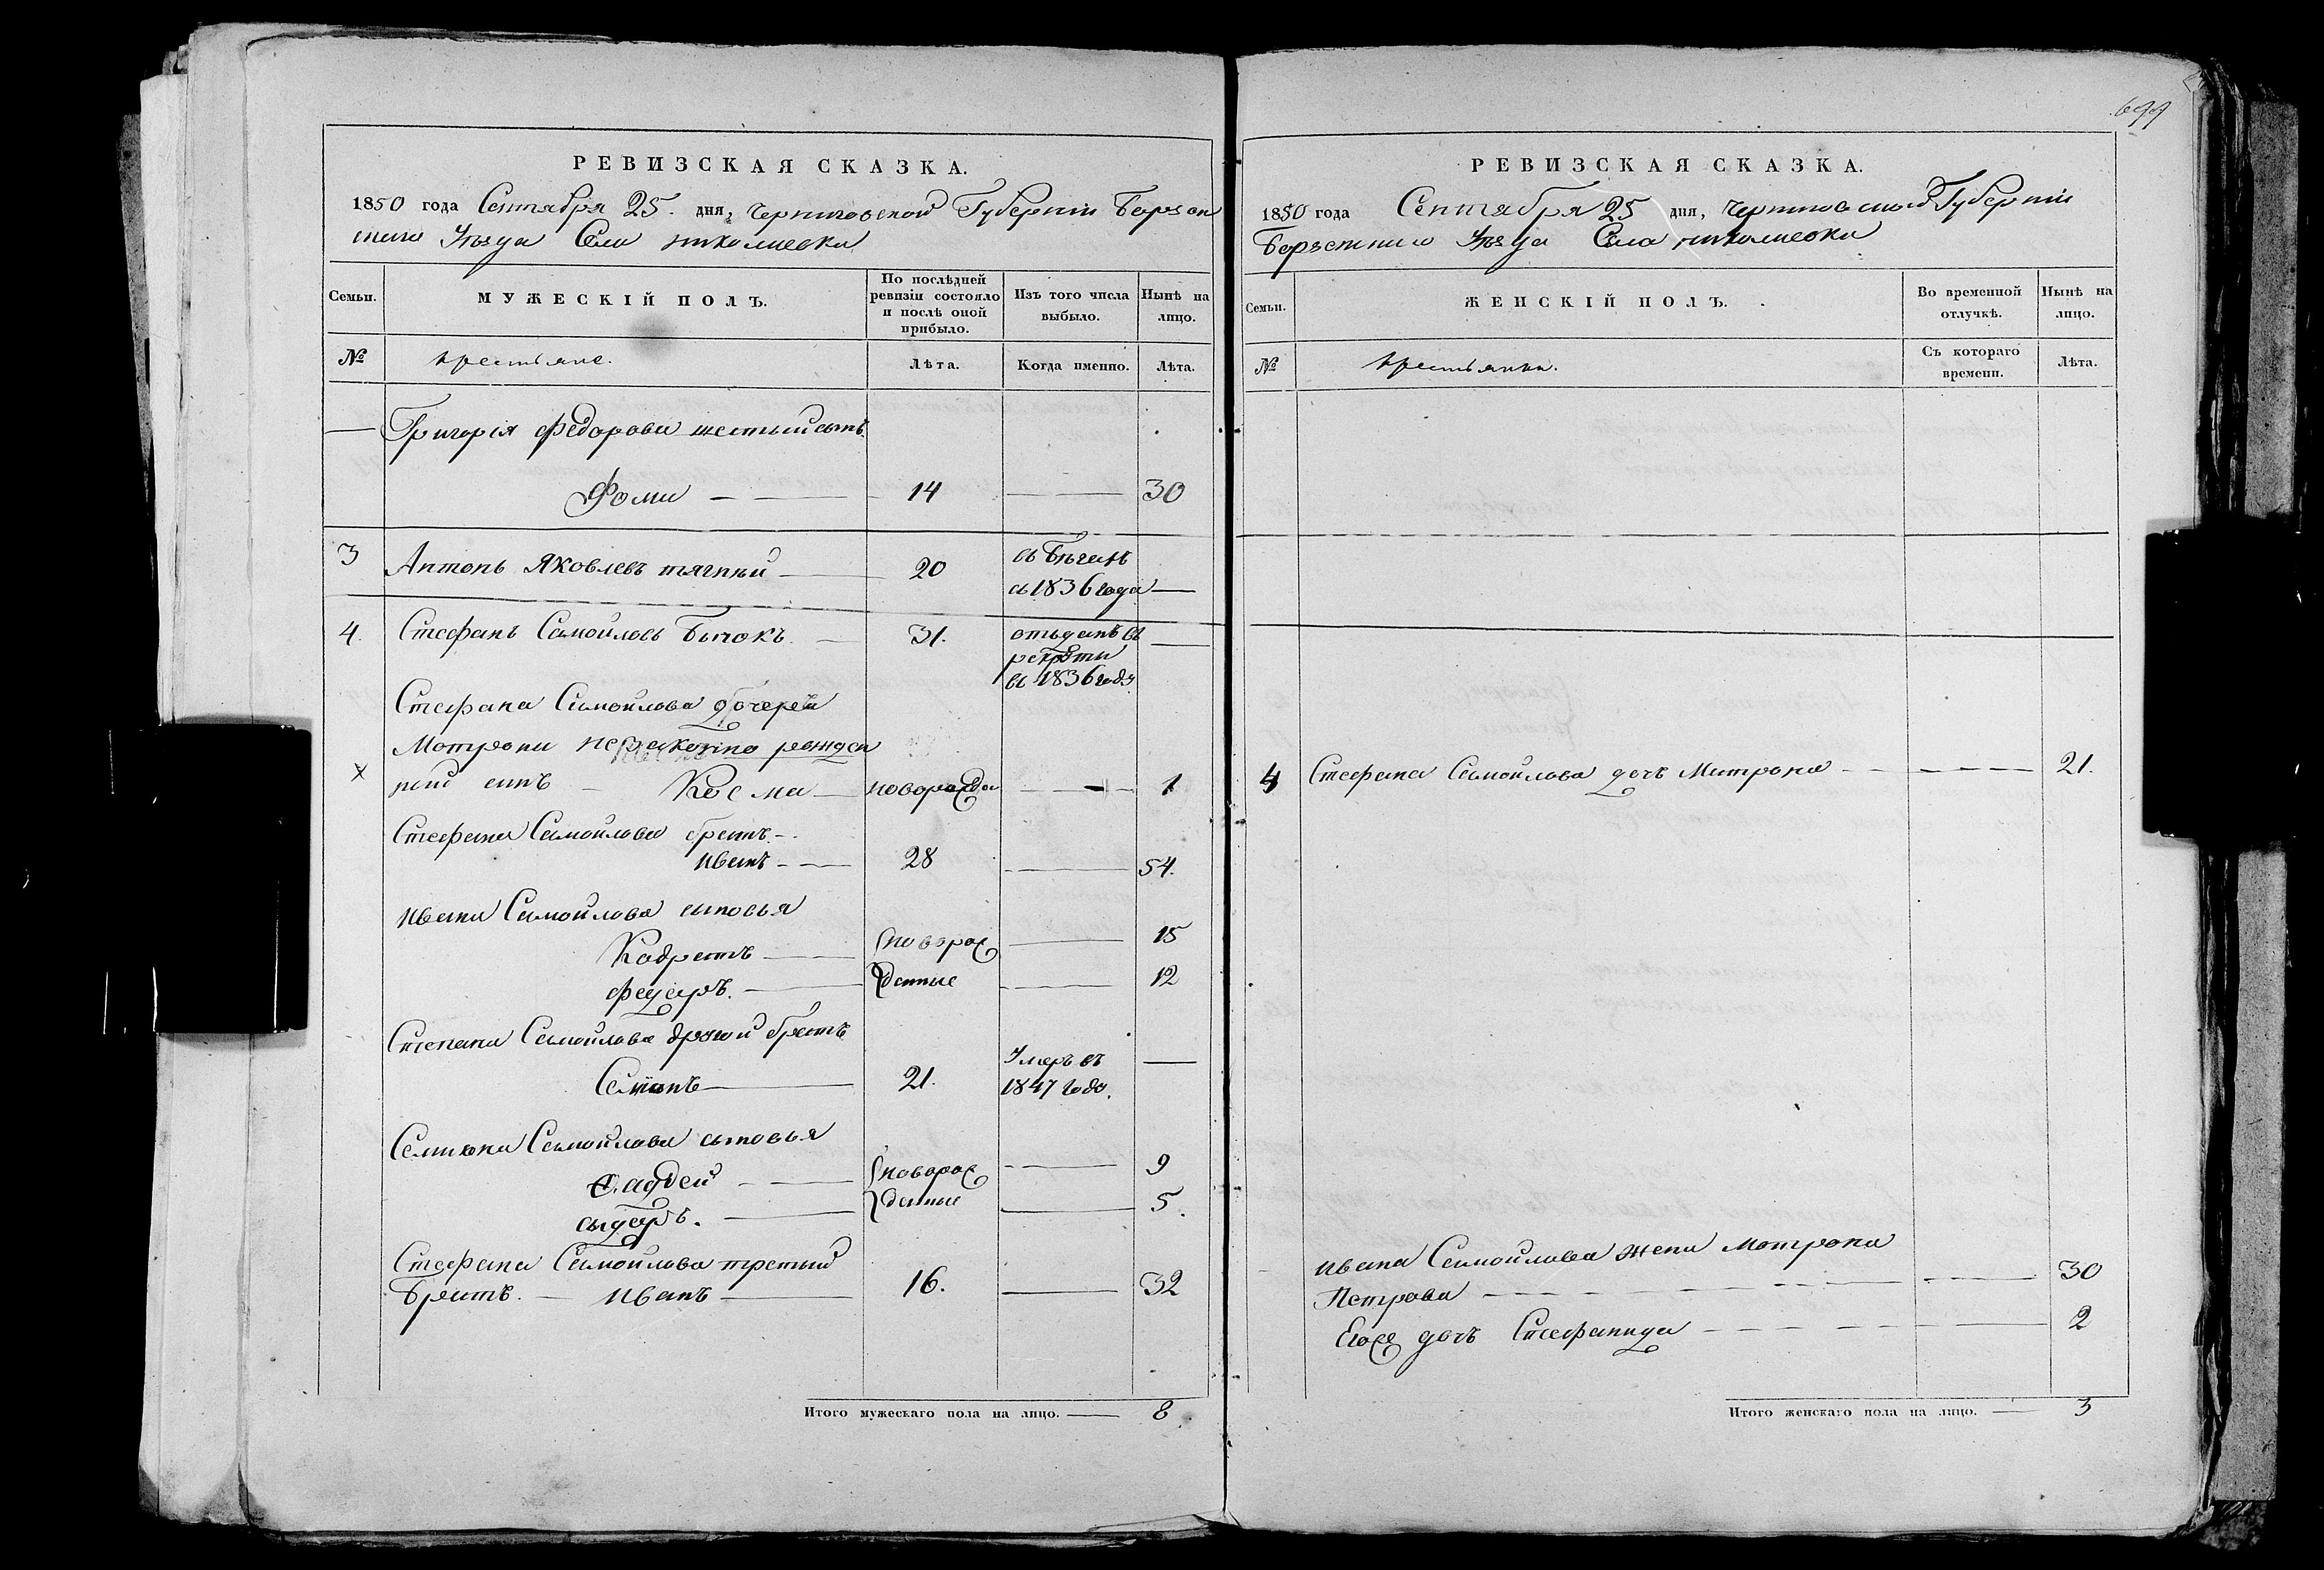 РЕВИЗСКАЯ СКАЗКА.
1850 года Сентября 25. дня, Черниговской Губернiи Борзен
скаго Уѣзда Села Николаевки
Семьи.
МУЖЕСКIЙ ПОЛЪ.
По послѣдней
ревизiи состояло
и послѣ оной
прибыло.
Изъ того числа
выбыло.
Нынѣ на
лицо.
№
крестьяне.
Лѣта.
Когда именно.
Лѣта.
Григорiя Федорова шестый сынъ
Фома 14 30
3 Антонъ Яковлевъ тягный 20
въ бѣгахъ
съ 1836 года
4. Стефанъ Самойловъ Бычокъ 31.
отъданъ въ
рекруты
въ 1836 году
Стефана Самойлова дочери
Мотроны незаконно рожден
ный сынъ Косма новорожден 1
Стефана Самойлова братъ
Иванъ 28 54.
Ивана Самойлова сыновья
Кодратъ новорож 15
Федоръ. денные 12
Степана Самойлова другий братъ
Семионъ 21.
Умеръ въ
1847 годо.
Семиона Самойлова сыновья
Фаддей новорож 9
Сыдоръ. денные 5.
Стефана Самойлова третий
Братъ. Иванъ 16. 32
Итого мужескаго пола на лицо. 8
699
РЕВИЗСКАЯ СКАЗКА.
1850 года Сентября 25 дня, Черниговской Губернiи
Борзенскаго Уѣзда Села Николаевки
Семьи.
ЖЕНСКIЙ ПОЛЪ.
Во временной
отлучкѣ.
Нынѣ на
лицо.
№
крестьянки.
Съ котораго
времени.
Лѣта.
4 Стефана Самойлова дочь Матрона 21.
Ивана Самойлова жена Мотрона
Петрова 30
Егоже дочь Стефанида 2
Итого женскаго пола на лицо. 3